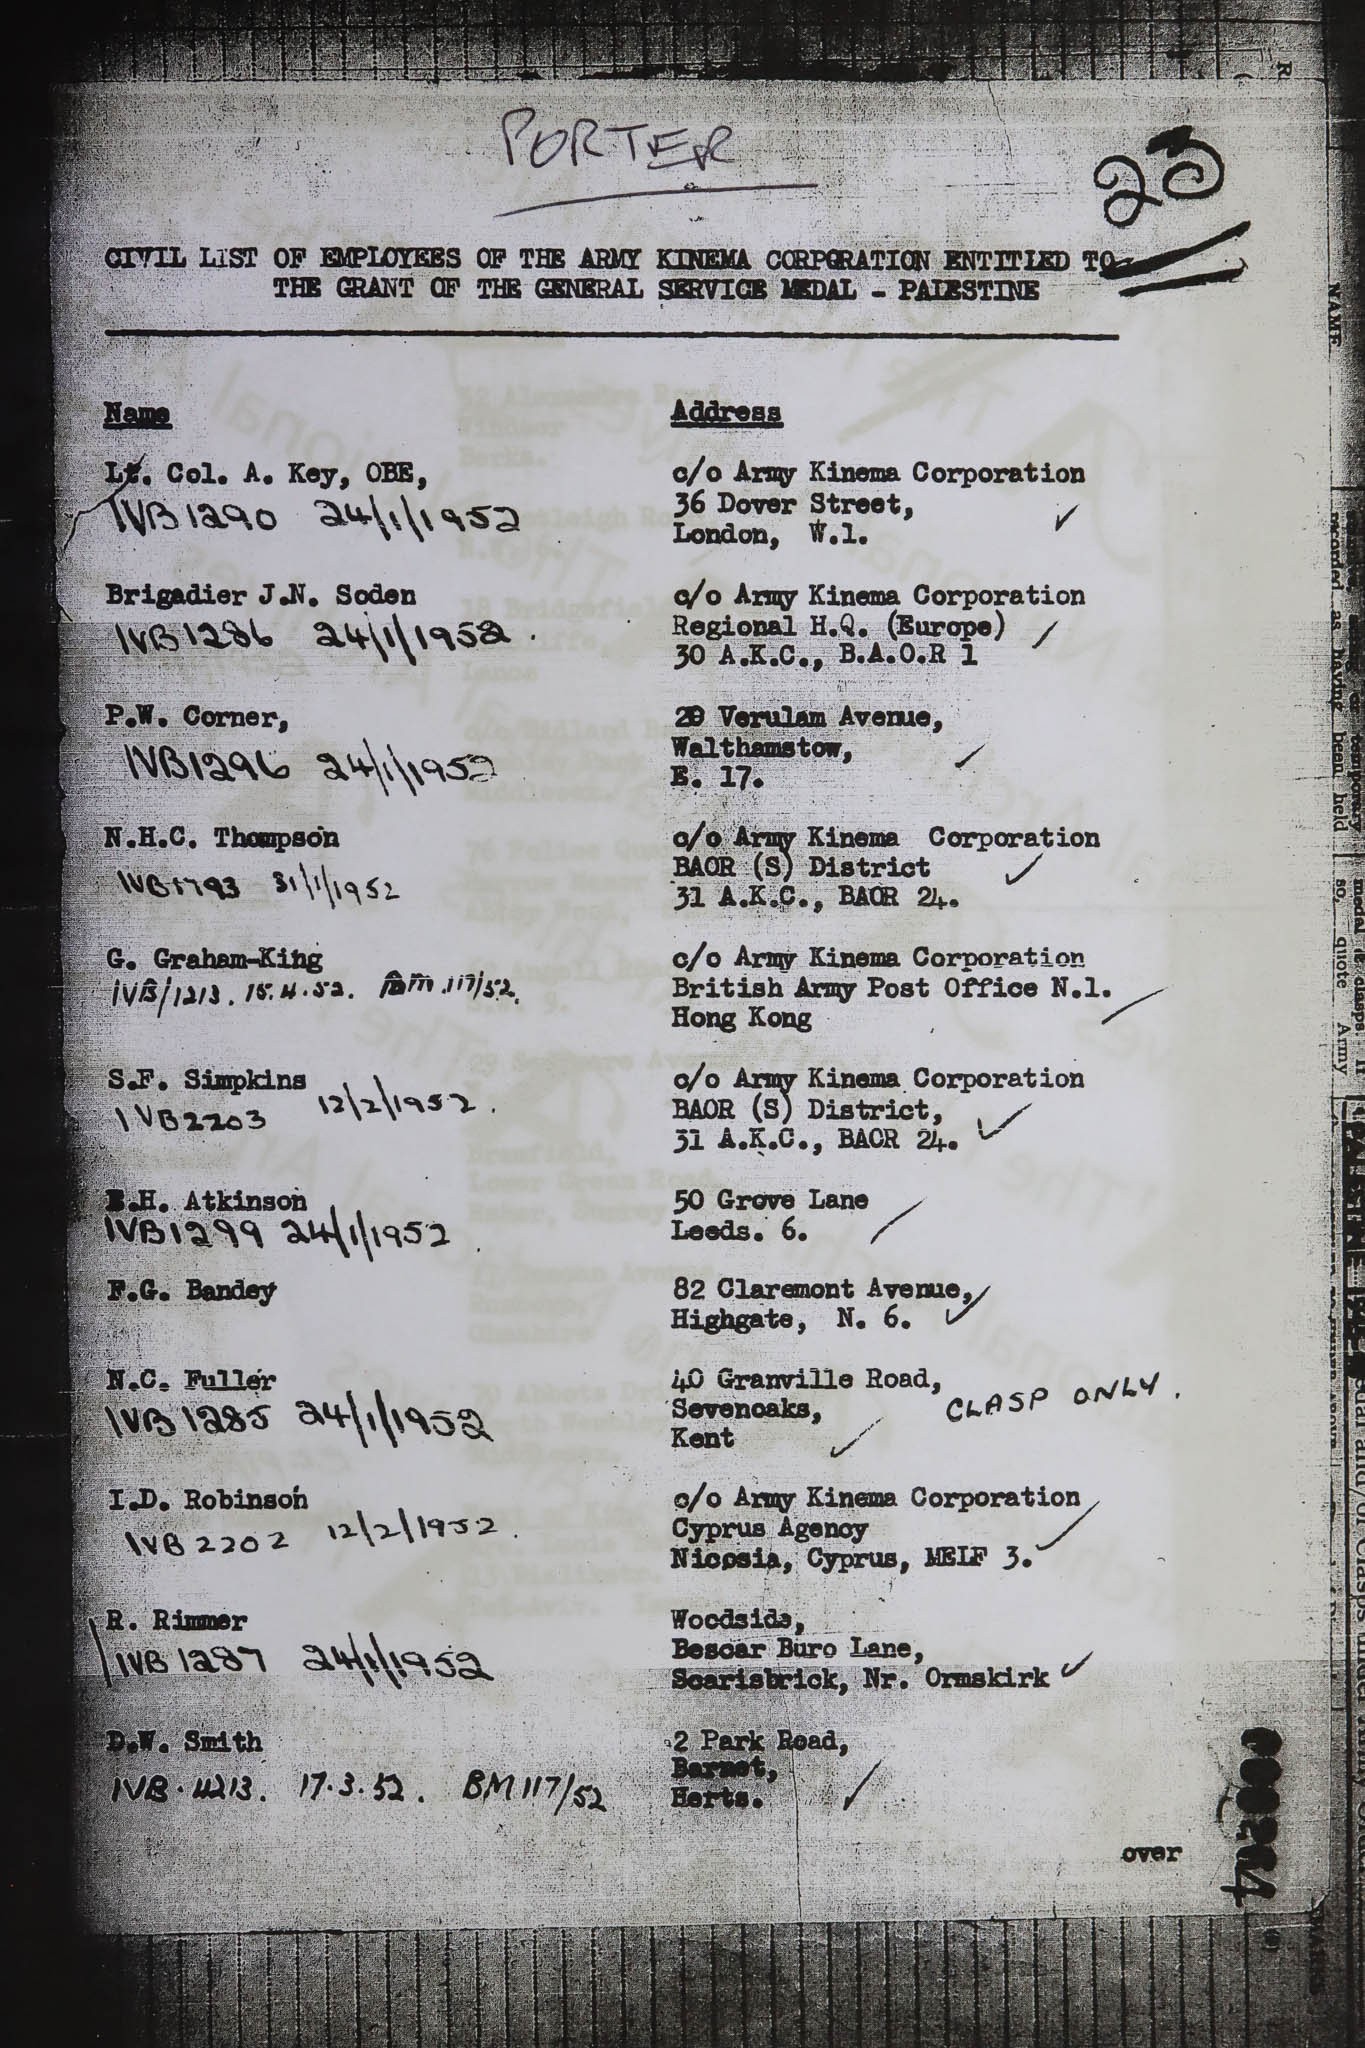 PORTER
23
CIVIL LIST OF EMPLOYEES OF THE ARMY KINEMA CORPORATION ENTITLED TO
THE GRANT OF THE GENERAL SERVICE MEDAL - PALESTINE
Name Address
Lt. Col. A. Key, OBE, c/o Army Kinema Corporation
36 Dover Street,
IVB 1290 24/1/1952
London, W.1.
Brigadier J.N. Soden c/o Army Kinema Corporation
IVB 1286 24/1/1952. Regional H.Q. (Europe)
30 A.K.C., B.A.O.R 1
P.W. Corner, 29 Verulam Avenue,
Walthamstow,
IVB1296 24/1/1952 E. 17.
N.H.C. Thompson c/o Army Kinema Corporation
BAOR (S) District
IVB1793 31/1/1952 31 A.K.C., BAOR 24.
G. Graham-King c/o Army Kinema Corporation
IVB/1213. 15.4.52. 117/52. British Army Post Office N.1.
Hong Kong
S.F. Simpkins c/o Army Kinema Corporation
IVB2203 12/2/1952. BAOR (S) District,
31 A.K.C., BAOR 24.
E.H. Atkinson 50 Grove Lane
IVB1299 24/1/1952. Leeds. 6.
F.G. Bandey 82 Claremont Avenue,
Highgate, N. 6.
N.C. Fuller 40 Granville Road,
CLASP ONLY.
IVB 1285 24/1/1952 Sevenoaks,
Kent
I.D. Robinson c/o Army Kinema Corporation
IVB 2202 12/2/1952. Cyprus Agency
Nicosia, Cyprus, MELF 3.
R. Rimmer Woodside,
IVB 1287 24/1/1952 Bescar Buro Lane,
Scarisbrick, Nr. Ormskirk
D.W. Smith 2 Park Road,
Barnet,
IVB. 4213. 17.3.52. BM 117/52 Herts.
over
NAME
recorded as having been held so, quote Army